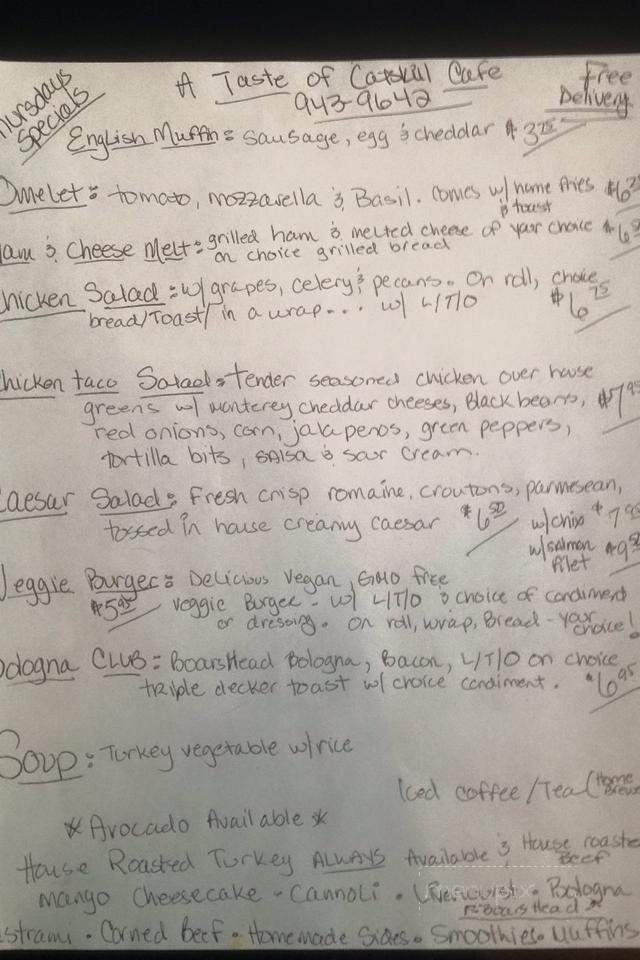 Thursdays Specials
A Taste of Catskill Cafe
943-9642
Free Delivery
English Muffin: Sausage, egg & cheddar $3.75
Omelet: tomato, mozzarella & Basil. Comes w/ home fries & toast $6.25
Ham & Cheese Melt: grilled ham & melted cheese of your choice
on choice grilled bread
Chicken Salad: w/ grapes, celery & pecans. On roll, choice
bread/Toast/ in a wrap... w/ L/T/O $6.75
Chicken taco Salad: Tender seasoned chicken over house
greens w/ monterey cheddar cheeses, Black beans, $7.95
red onions, corn, jalapenos, green peppers,
tortilla bits, salsa & sour cream.
Caesar Salad: Fresh crisp romaine, croutons, parmesean,
tossed in house creamy caesar $6.50 w/chix $7.95
w/salmon filet
Veggie Burger: Delicious Vegan, GMO free
$5.95 veggie Burger - w/ L/T/O & choice of condiment
or dressing. On roll, wrap, Bread - your choice!
Bologna Club: BoarsHead Bologna, Bacon, L/T/O on choice
triple decker toast w/ choice condiment. $6.95
Soup: Turkey vegetable w/rice
Iced coffee/Tea (Home Brewed
* Avocado Available *
House Roasted Turkey ALWAYS Available & House roasted Beef
Mango Cheesecake - Cannoli . Liverwurst . Bologna
BoarsHead
Pastrami . Corned Beef . Homemade Sides . Smoothies . Muffins